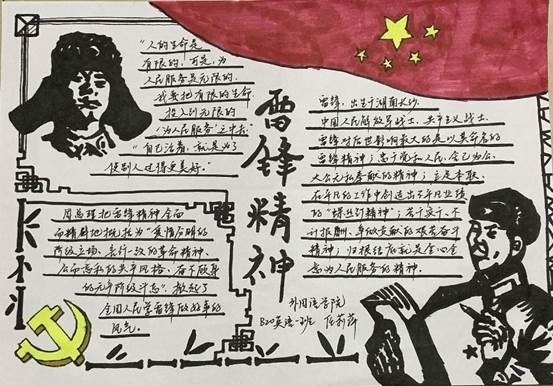 “人的生命是
有限的,可是,为
人民服务是无限的,
我要把有限的生命,
投入到无限的
‘为人民服务’之中去.”
“自己活着,就是为了
使别人过得更美好。”
雷锋精神
雷锋,出生于湖南长沙,
中国人民解放军战士,共产主义战士.
雷锋对后世影响最大的是以其命名的
雷锋精神;忠于党和人民、舍己为公、
大公无私奉献的精神;立足本职、
在平凡的工作中创造出不平凡业绩
的“螺丝钉精神”;苦干实干、不
计报酬、争做贡献的艰苦奋斗
精神;归根结底就是全心全
意为人民服务的精神.
周总理把雷锋精神全面
而精辟地概括为“爱憎分明的
阶级立场、言行一致的革命精神、
公而忘私的共产风格、奋不顾身
的无产阶级斗志”.掀起了
全国人民学雷锋做好事的
风气。
外国语学院
B20英语一班